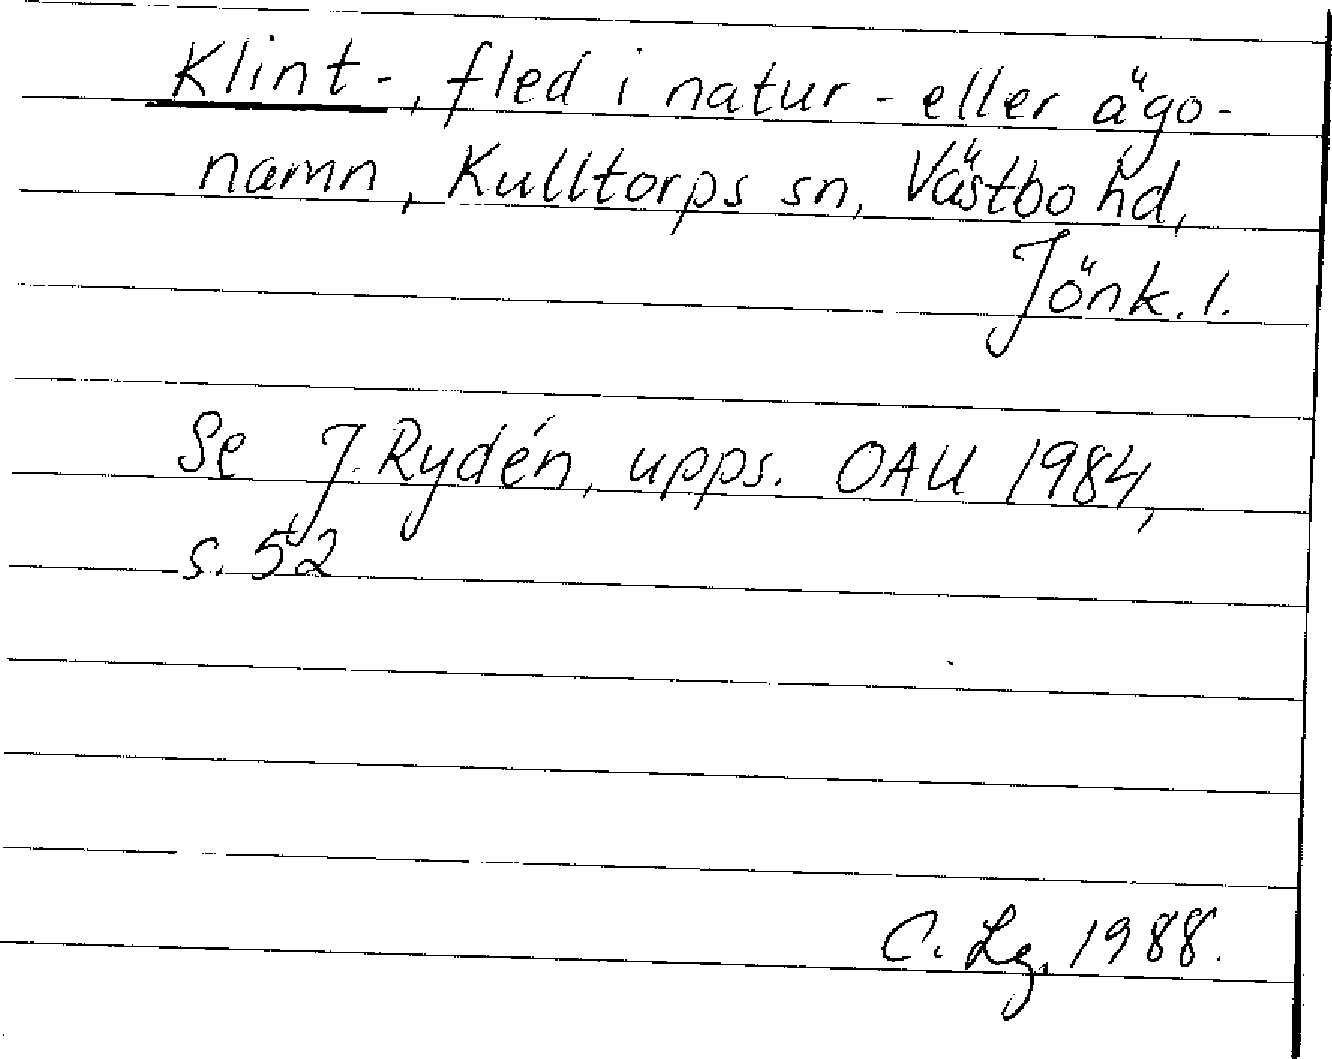 Klint-, fled i natur- eller ägo-
namn, Kulltorps sn, Västbo hd,
Jönk. l.
Se J. Rydén, upps. OAU 1984,
s. 52
C. Lg, 1988.